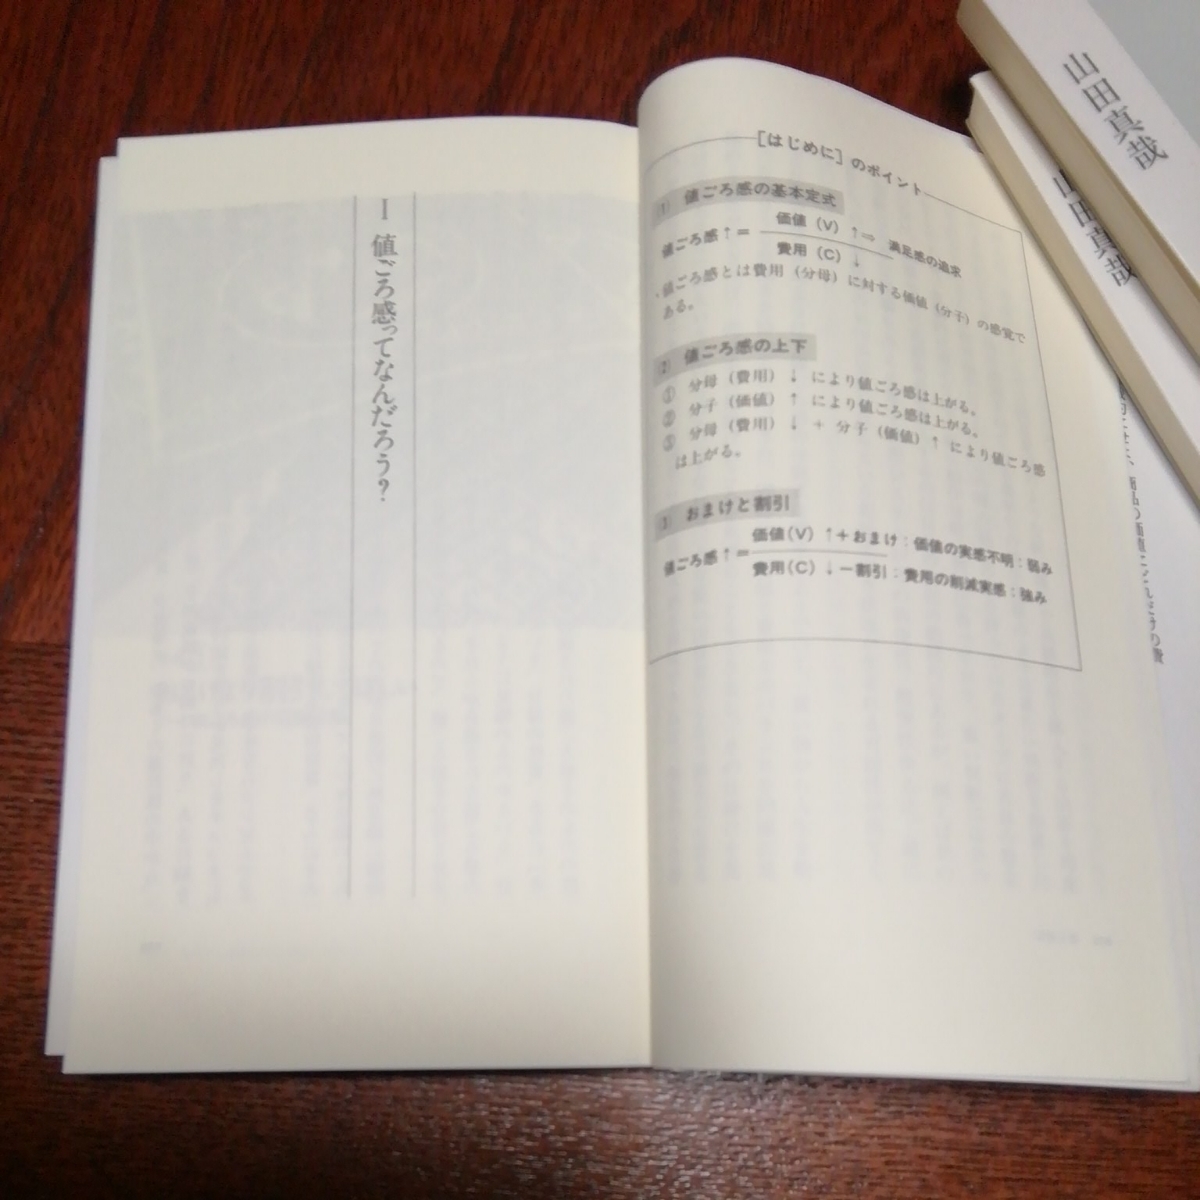 [はじめに]のポイント
(1) 値ごろ感の基本定式
値ごろ感↑= 価値(V)↑⇒ 満足感の追求
費用(C)↓
、値ごろ感とは費用(分母)に対する価値(分子)の感覚で
ある。
(2) 値ごろ感の上下
① 分母(費用)↓ により値ごろ感は上がる。
② 分子(価値)↑ により値ごろ感は上がる。
③ 分母(費用)↓ + 分子(価値)↑ により値ごろ感
は上がる。
(3) おまけと割引
値ごろ感↑= 価値(V)↑+おまけ:価値の実感不明:弱み
費用(C)↓-割引:費用の削減実感:強み
I 値ごろ感ってなんだろう?
山田真哉
山田真哉